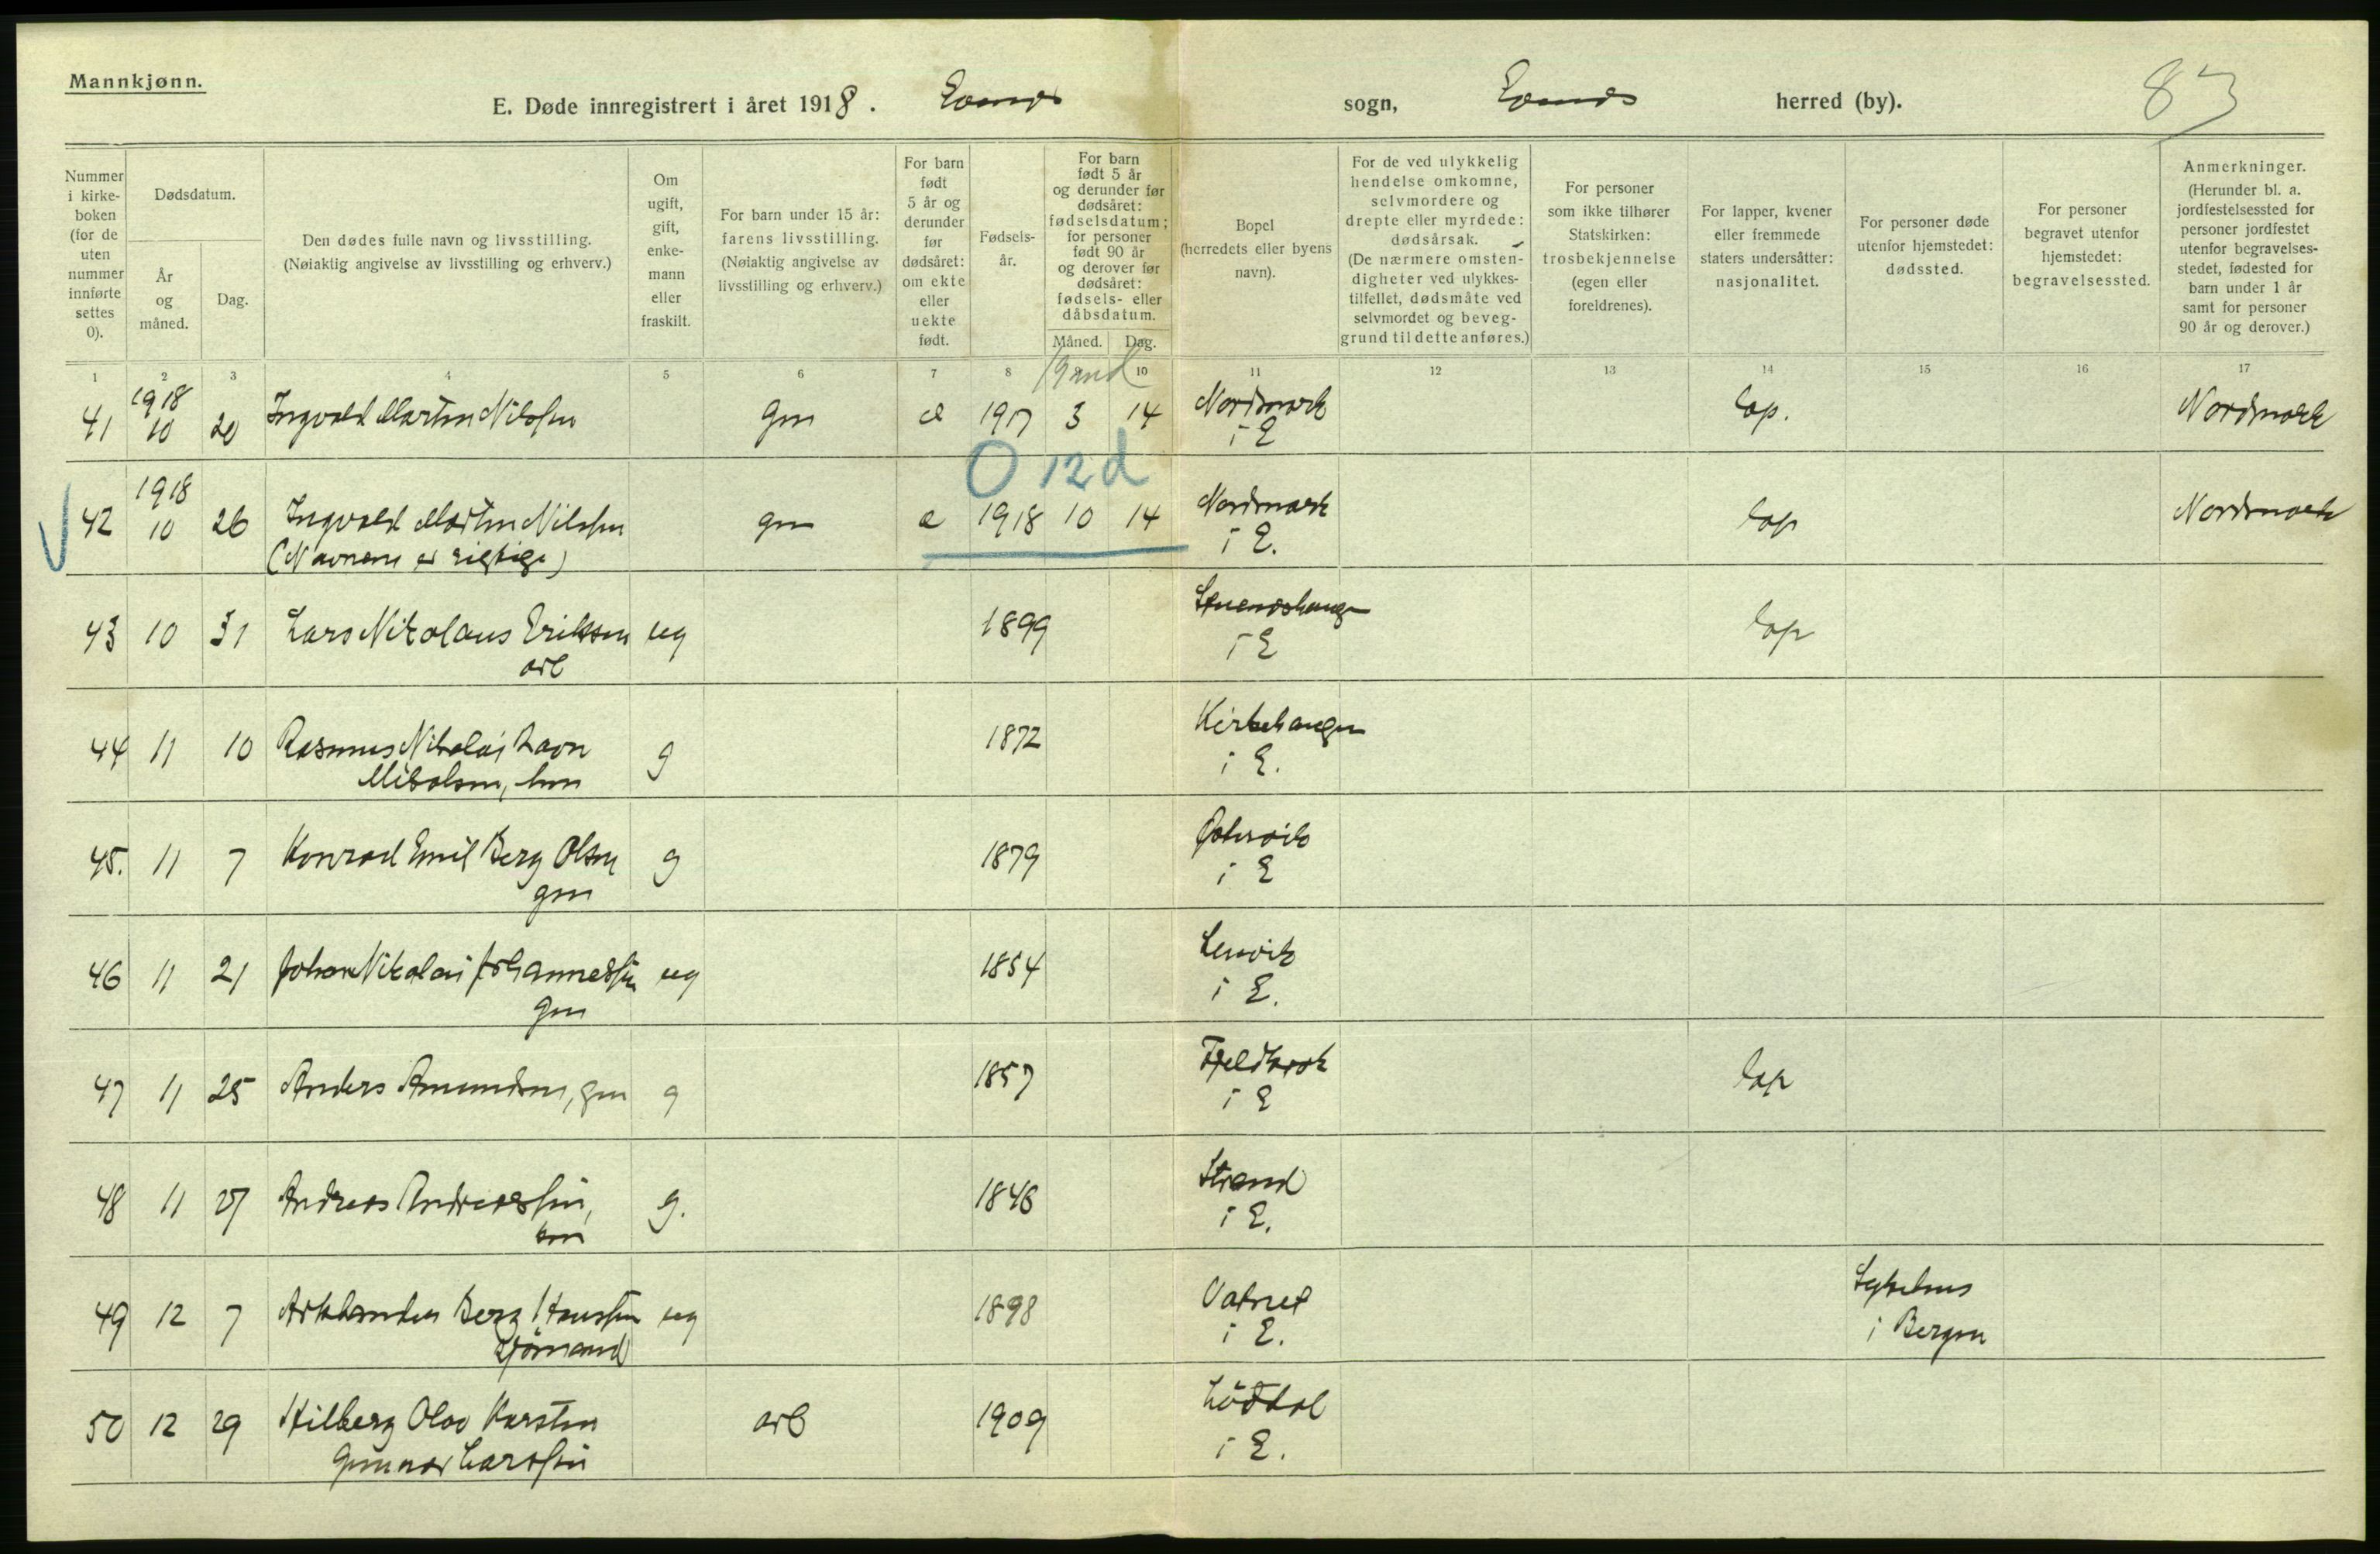 Mannkjønn.
E. Døde innregistrert i året 1918. Evenes sogn, Evenes herred (by). 83
Nummer i kirke- boken (for de uten nummer innførte settes 0).
Dødsdatum.
År og måned.
Dag.
Den dødes fulle navn og livsstilling.
(Nøiaktig angivelse av livsstilling og erhverv.)
Om ugift, gift, enke- mann eller fraskilt.
For barn under 15 år: farens livsstilling. (Nøiaktig angivelse av livsstilling og erhverv.)
For barn født 5 år og derunder før dødsåret: om ekte eller uekte født.
Fødsels- år.
For barn født 5 år og derunder før dødsåret: fødselsdatum; for personer født 90 år og derover før dødsåret: fødsels- eller dåbsdatum.
Måned. Dag.
Bopel (herredets eller byens navn).
For de ved ulykkelig hendelse omkomne, selvmordere og drepte eller myrdede: dødsårsak. (De nærmere omsten- digheter ved ulykkes- tilfellet, dødsmåte ved selvmordet og beveg- grund til dette anføres.)
For personer som ikke tilhører Statskirken: trosbekjennelse (egen eller foreldrenes).
For lapper, kvener eller fremmede staters undersåtter: nasjonalitet.
For personer døde utenfor hjemstedet: dødssted.
For personer begravet utenfor hjemstedet: begravelsessted.
Anmerkninger. (Herunder bl. a. jordfestelsessted for personer jordfestet utenfor begravelses- stedet, fødested for barn under 1 år samt for personer 90 år og derover.)
1 2 3 4 5 6 7 8 10 11 12 13 14 15 16 17
1918
41 10 20 Ingvald Martin Nilssen gm e 1917 3 14 Nordmark i E lap. Nordmark
0 12 d
1918
42 10 26 Ingvald Martin Nilssen gm e 1918 10 14 Nordmark i E. lap Nordmark
(Navnene er rigtige)
43 10 31 Lars Nikolaus Eriksen ug 1899 i E lap
arb
44 11 10 Rasmus Nikolai Ravn g 1872 Kirkehaugen i E.
Mikalsen,
45. 11 7 Konrad Emil Berg Olsen g 1879 Østervik i E
gm
46 11 21 Johan Nikolai Johannessen ug 1854 Lenvik i E.
gm
47 11 25 Anders Amundsen, gm g 1857 i E lap
48 11 27 Andreas Andreassen, g. 1846 Strand i E.
49 12 7 Berg Hanssen ug 1898 Vatnet i E. Sykehus i Bergen
sjömand
50 12 29 Hilberg Olav Karsten arb 1909 i E.
Gunnar Larssen